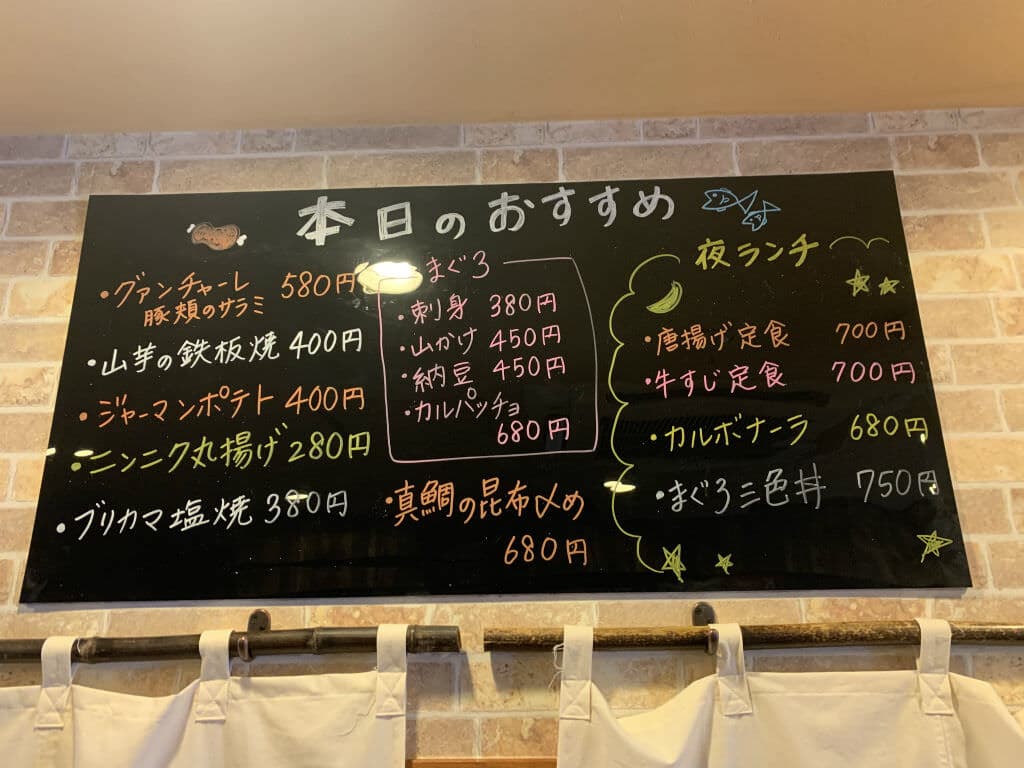 本日のおすすめ
・グァンチャーレ 580円
豚頬のサラミ
・山芋の鉄板焼 400円
・ジャーマンポテト 400円
・ニンニク丸揚げ 280円
・ブリカマ塩焼 380円
まぐろ
・刺身 380円
・山かけ 450円
・納豆 450円
・カルパッチョ
680円
・真鯛の昆布〆め
680円
夜ランチ
・唐揚げ定食 700円
・牛すじ定食 700円
・カルボナーラ 680円
・まぐろ三色丼 750円